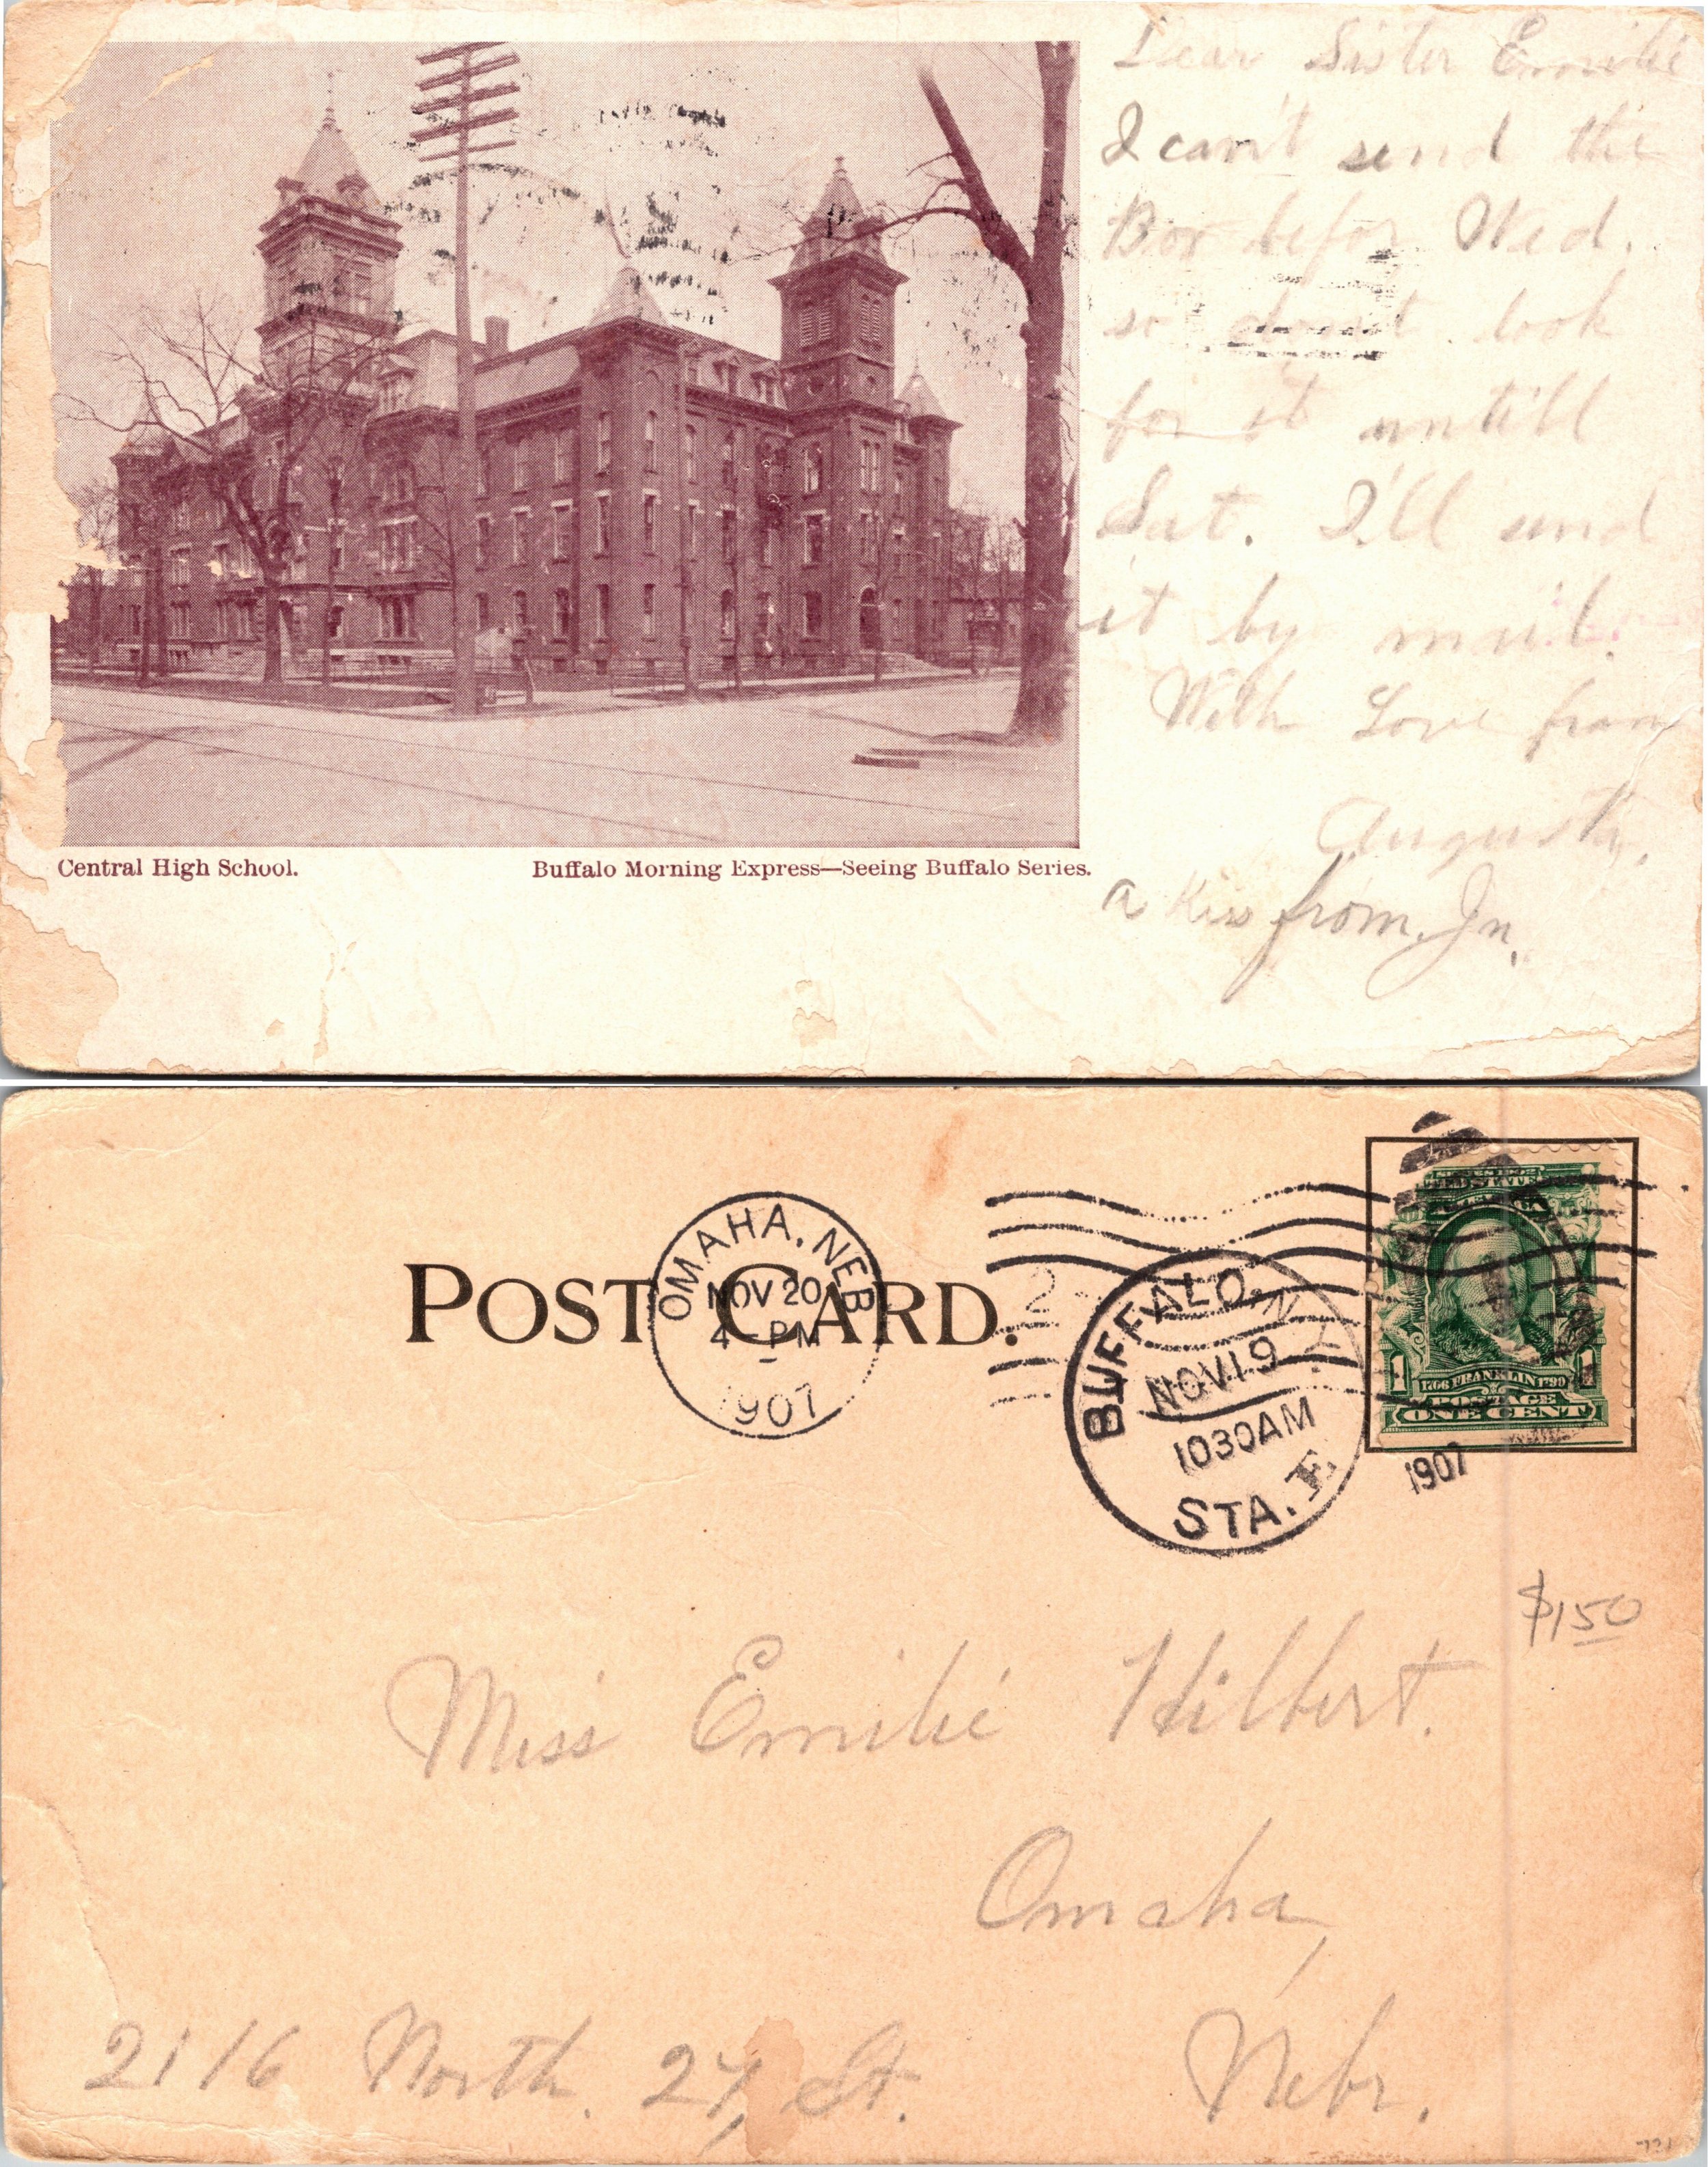 Dear Sister Emilie
I can't send the
Box befor Wed.
so don't look
for it untill
Sat. I'll send
it by mail.
With Love from
Augusta,
a Kiss from. Jn.
Central High School.
Buffalo Morning Express—Seeing Buffalo Series.
POST CARD.
OMAHA, NEB
NOV 20
4 - PM
1907
2
BUFFALO, N.Y.
NOV 19
1030AM
1907
STA. F
1
1
1706 FRANKLIN 1790
POSTAGE
ONE CENT
$1.50
Miss Emilie Hilbert.
Omaha,
2116 North. 27, St. Nebr.